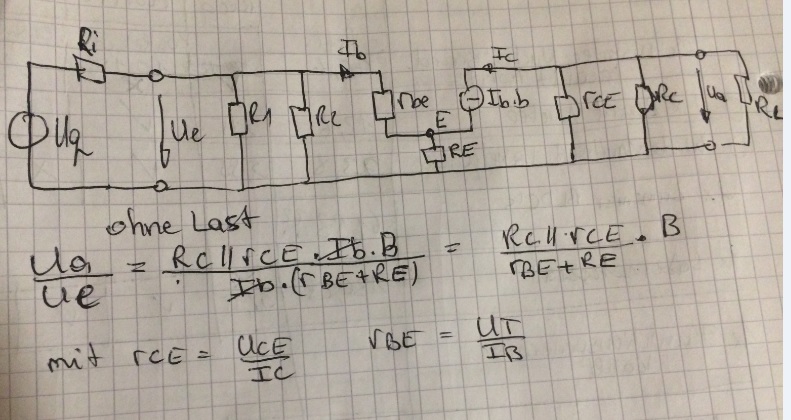 Ri Ib Ic
Uq Ue R1 R2 rbe E Ib.b rCE Rc Ua RL
RE
ohne Last
Ua/Ue = Rc||rCE . Ib. B / Ib.(rBE+RE) = Rc||.rCE / rBE+RE . B
mit rCE = UCE/IC rBE = UT/IB